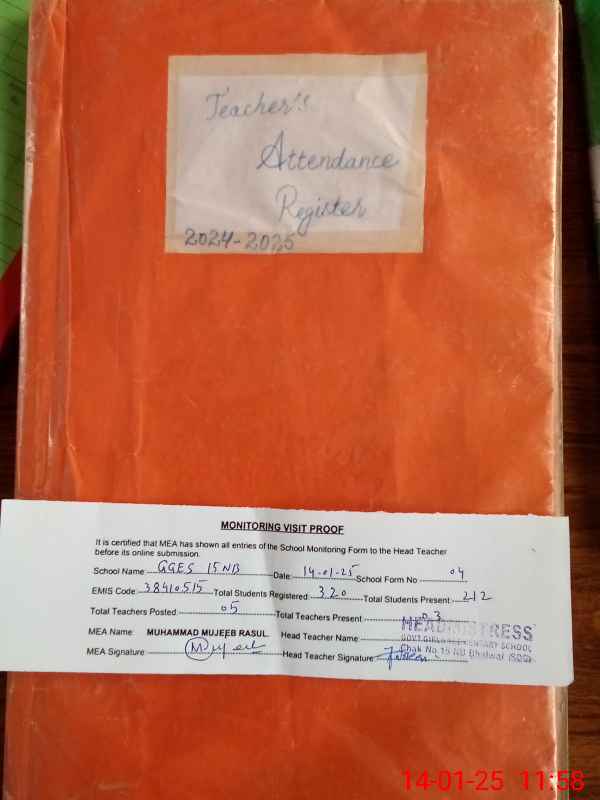 Teacher's
Attendance
Register
2024-2025
MONITORING VISIT PROOF
It is certified that MEA has shown all entries of the School Monitoring Form to the Head Teacher
before its online submission.
School Name GGES 15NB Date 14-01-25 School Form No 04
EMIS Code 38410515 Total Students Registered 320 Total Students Present 212
Total Teachers Posted 05 Total Teachers Present 03
MEA Name MUHAMMAD MUJEEB RASUL Head Teacher Name
HEADMISTRESS
GOVT. GIRLS ELEMENTARY SCHOOL
Chak No. 15 NB Bhalwal (SGD)
MEA Signature Mujeeb Head Teacher Signature
14-01-25 11:58